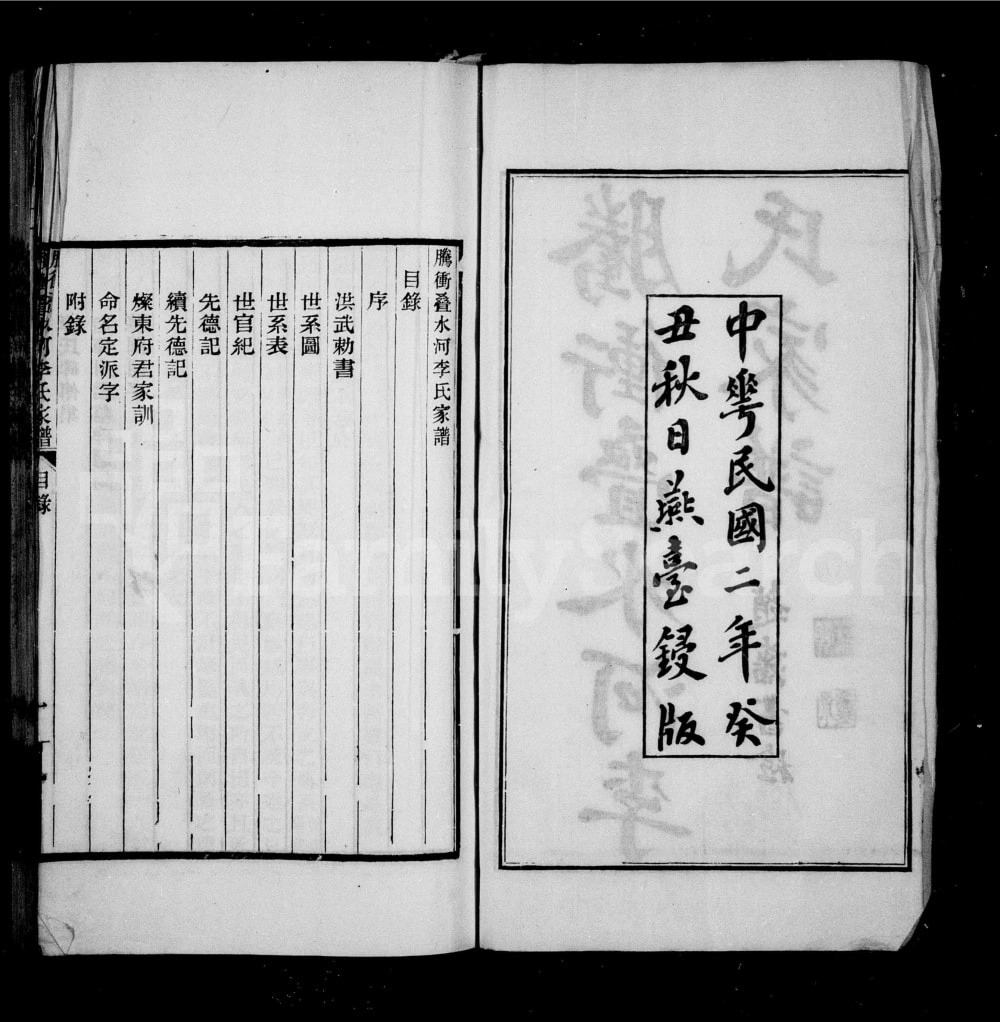 中華民國二年癸
丑秋日燕臺鋟版
騰衝叠水河李氏家譜
目錄
序
洪武勅書
世系圖
世系表
世官紀
先德記
續先德記
燦東府君家訓
命名定派字
附錄
河李氏家譜
目錄